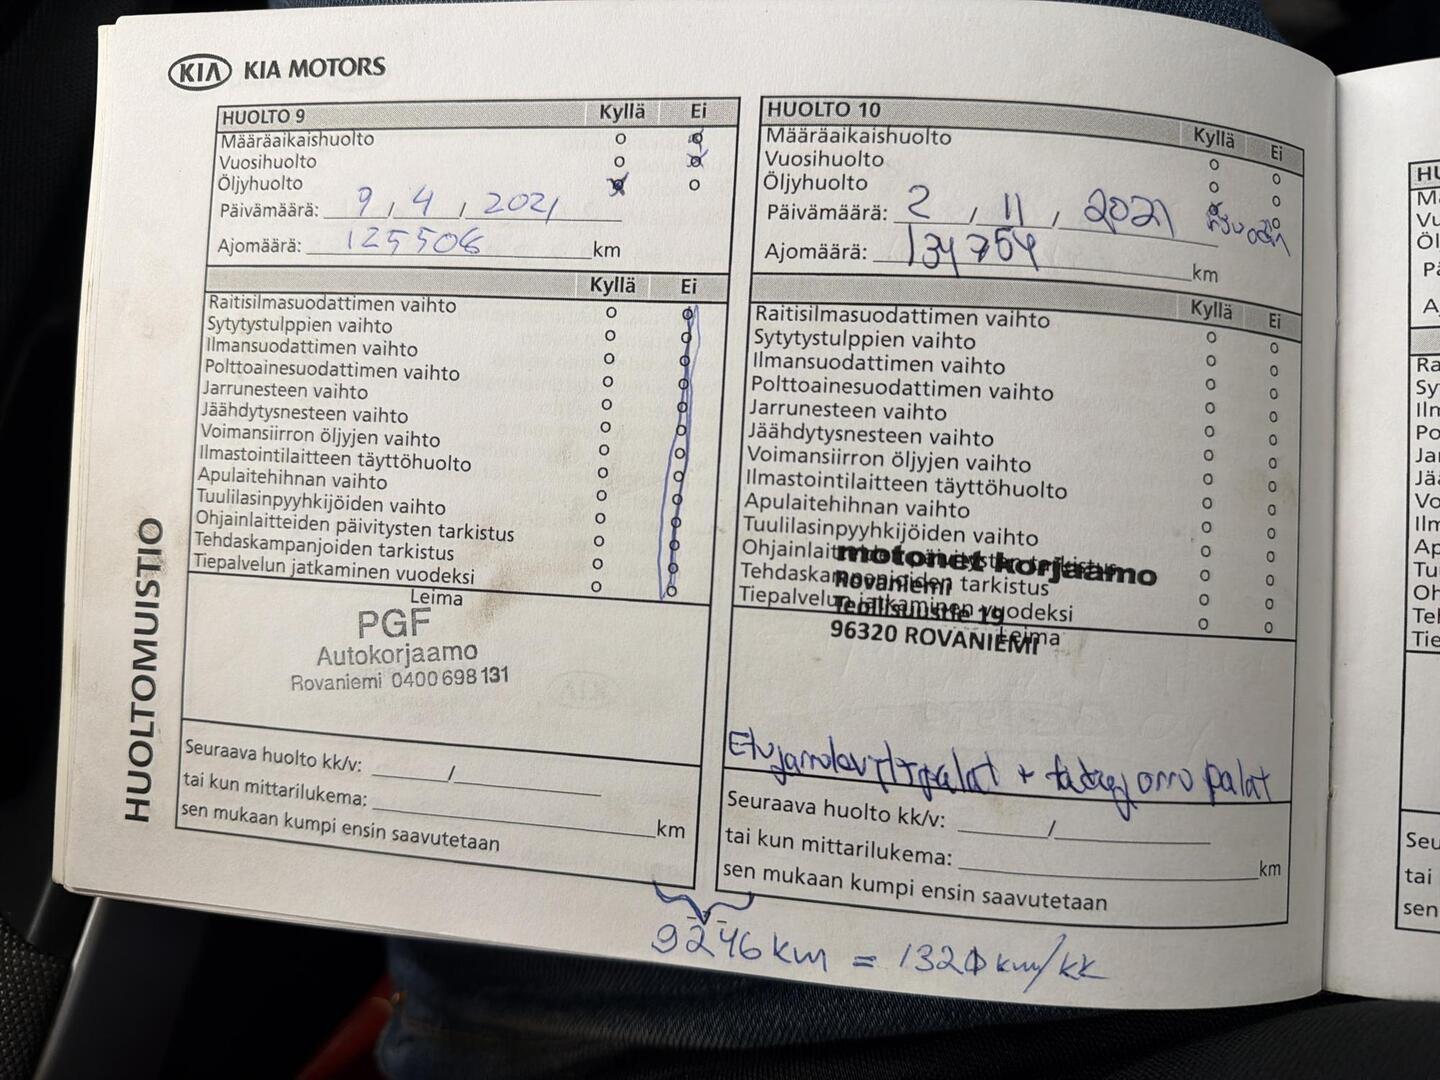 KIA KIA MOTORS
HUOLTOMUISTIO
HUOLTO 9 Kyllä Ei
Määräaikaishuolto
Vuosihuolto
Öljyhuolto
Päivämäärä: 9 / 4 / 2021
Ajomäärä: 125506 km
Kyllä Ei
Raitisilmasuodattimen vaihto
Sytytystulppien vaihto
Ilmansuodattimen vaihto
Polttoainesuodattimen vaihto
Jarrunesteen vaihto
Jäähdytysnesteen vaihto
Voimansiirron öljyjen vaihto
Ilmastointilaitteen täyttöhuolto
Apulaitehihnan vaihto
Tuulilasinpyyhkijöiden vaihto
Ohjainlaitteiden päivitysten tarkistus
Tehdaskampanjoiden tarkistus
Tiepalvelun jatkaminen vuodeksi
Leima
PGF
Autokorjaamo
Rovaniemi 0400 698 131
Seuraava huolto kk/v: /
tai kun mittarilukema: km
sen mukaan kumpi ensin saavutetaan
HUOLTO 10 Kyllä Ei
Määräaikaishuolto
Vuosihuolto
Öljyhuolto
Päivämäärä: 2 / 11 / 2021
Ajomäärä: 134754 km
Kyllä Ei
Raitisilmasuodattimen vaihto
Sytytystulppien vaihto
Ilmansuodattimen vaihto
Polttoainesuodattimen vaihto
Jarrunesteen vaihto
Jäähdytysnesteen vaihto
Voimansiirron öljyjen vaihto
Ilmastointilaitteen täyttöhuolto
Apulaitehihnan vaihto
Tuulilasinpyyhkijöiden vaihto
Ohjainlaitteiden päivitysten tarkistus
Tehdaskampanjoiden tarkistus
Tiepalvelun jatkaminen vuodeksi
Leima
motonet korjaamo
Rovaniemi
Teollisuustie 19
96320 ROVANIEMI
+ palat
Seuraava huolto kk/v: /
tai kun mittarilukema: km
sen mukaan kumpi ensin saavutetaan
9246 km = 1320 km/kk